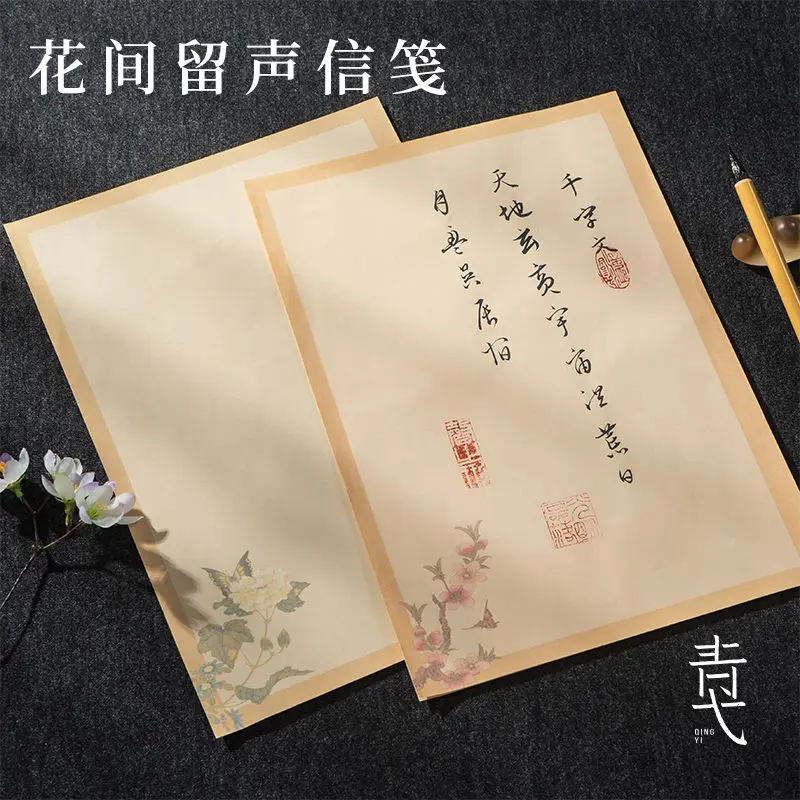 花间留声信笺
千字文
天地玄黄宇宙洪荒日
月盈昃辰宿
QING
YI